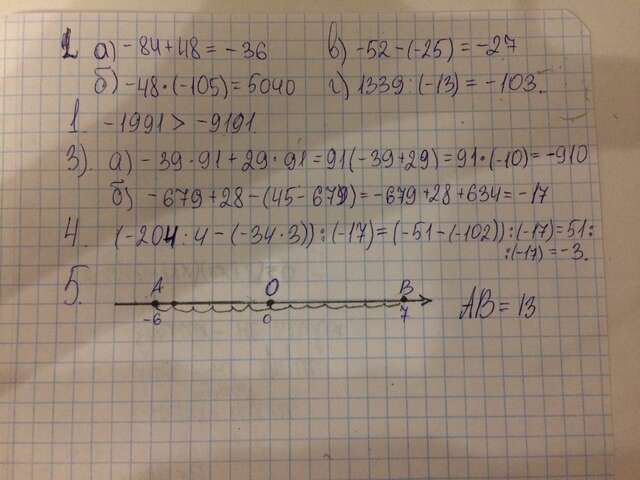 2 а) -84+48 = -36 в) -52-(-25) = -27
б) -48·(-105) = 5040 г) 1339:(-13) = -103.
1. -1991 > -9191
3). а) -39·91+29·91 = 91(-39+29) = 91·(-10) = -910
б) -679+28-(45-679) = -679+28+634 = -17
4. (-204:4-(-34·3)):(-17) = (-51-(-102)):(-17) = 51:
:(-17) = -3.
5. A O B
-6 0 7 AB = 13